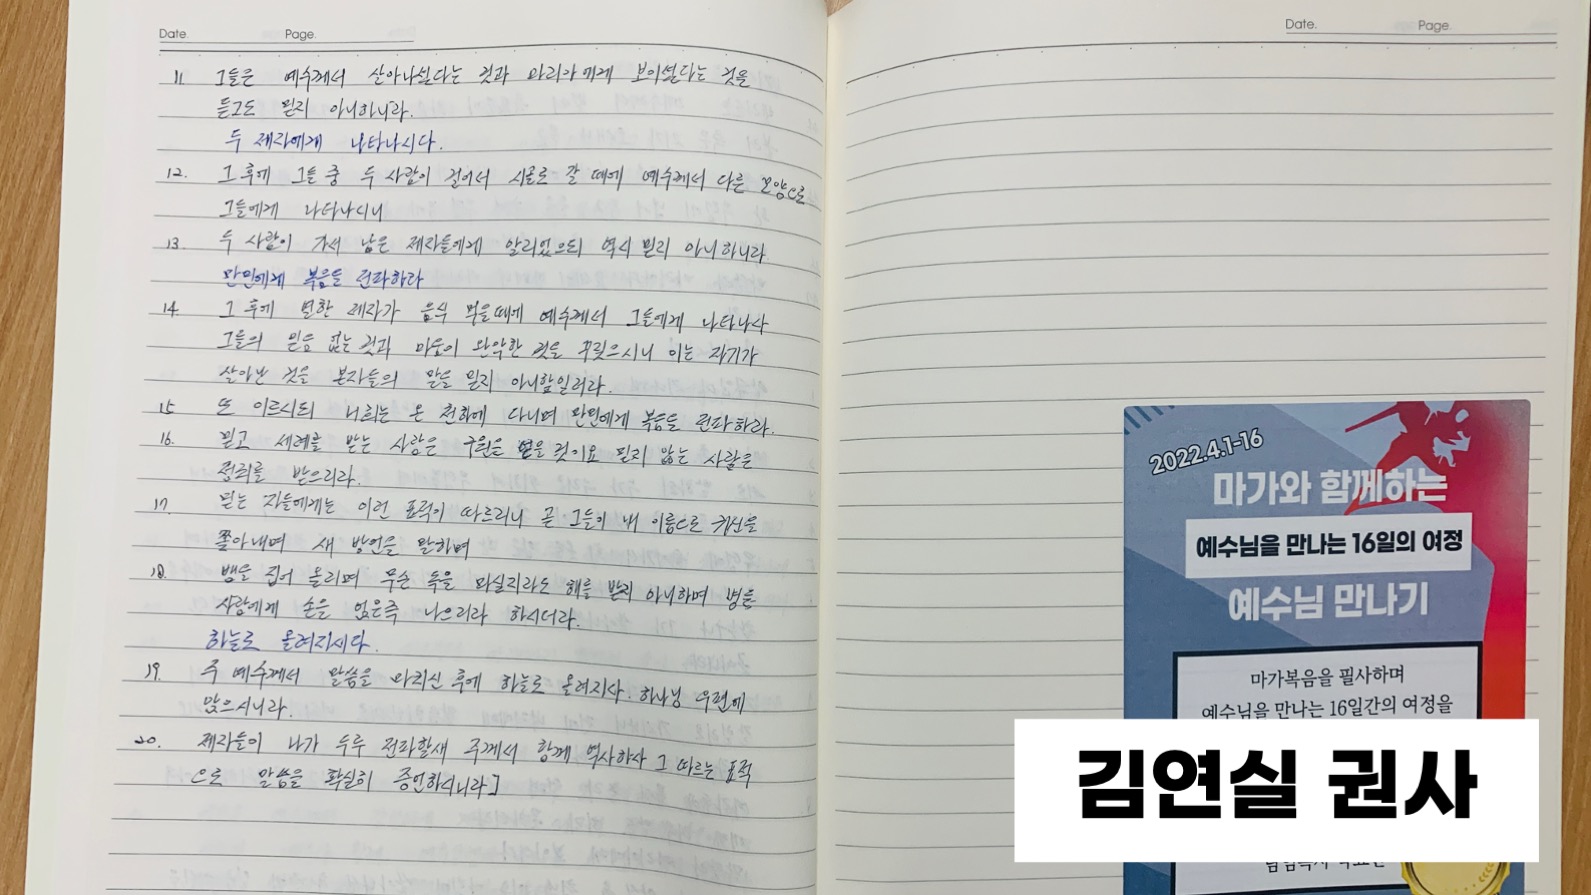 Date. Page.
11 그들은 예수께서 살아나셨다는 것과 마리아에게 보이셨다는 것을
듣고도 믿지 아니하니라.
두 제자에게 나타나시다.
12. 그 후에 그들 중 두 사람이 걸어서 시골로 갈 때에 예수께서 다른 모양으로
그들에게 나타나시니
13. 두 사람이 가서 남은 제자들에게 알리었으되 역시 믿지 아니하니라
만민에게 복음을 전파하라
14 그 후에 열한 제자가 음식 먹을때에 예수께서 그들에게 나타나사
그들의 믿음 없는 것과 마음이 완악한 것을 꾸짖으시니 이는 자기가
살아난 것을 본자들의 말을 믿지 아니함일러라.
15 또 이르시되 너희는 온 천하에 다니며 만민에게 복음을 전파하라.
16. 믿고 세례를 받는 사람은 구원을 얻을 것이요 믿지 않는 사람은
정죄를 받으리라.
17. 믿는 자들에게는 이런 표적이 따르리니 곧 그들이 내 이름으로 귀신을
쫓아내며 새 방언을 말하며
18. 뱀을 집어 올리며 무슨 독을 마실지라도 해를 받지 아니하며 병든
사람에게 손을 얹은즉 나으리라 하시더라.
하늘로 올려지시다.
19. 주 예수께서 말씀을 마치신 후에 하늘로 올려지사. 하나님 우편에
앉으시니라.
20. 제자들이 나가 두루 전파할새 주께서 함께 역사하사 그 따르는 표적
으로 말씀을 확실히 증언하시니라]
Date. Page.
2022.4.1-16
마가와 함께하는
예수님을 만나는 16일의 여정
예수님 만나기
마가복음을 필사하며
예수님을 만나는 16일간의 여정을
김연실 권사